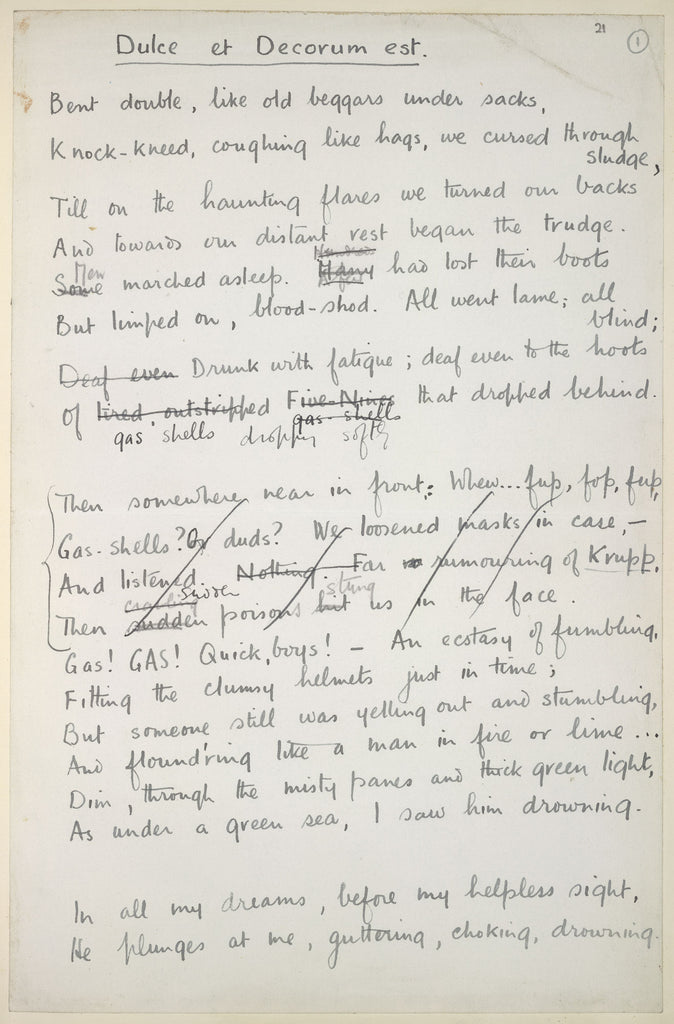 21
1
Dulce et Decorum est.
Bent double, like old beggars under sacks,
Knock-kneed, coughing like hags, we cursed through
sludge,
Till on the haunting flares we turned our backs
And towards our distant rest began the trudge.
Hundreds
Men
Some marched asleep. Many had lost their boots
But limped on, blood-shod. All went lame; all
blind;
Deaf even Drunk with fatigue; deaf even to the hoots
of tired, outstripped Five-Nines that dropped behind.
gas-shells
gas shells dropping softly
Then somewhere near in front: Whew... fup, fop, fup,
Gas-shells? Or duds? We loosened masks in case, —
And listened. Nothing. Far rumouring of Krupp,
crawling Sudden stung
Then sudden poisons hit us in the face.
Gas! GAS! Quick, boys! — An ecstasy of fumbling,
Fitting the clumsy helmets just in time;
But someone still was yelling out and stumbling,
And flound'ring like a man in fire or lime...
Dim, through the misty panes and thick green light,
As under a green sea, I saw him drowning.
In all my dreams, before my helpless sight,
He plunges at me, guttering, choking, drowning.